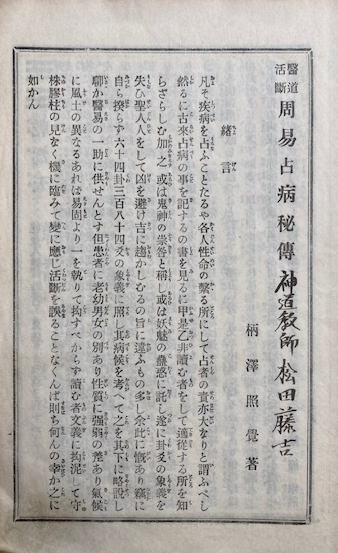 醫道
活斷
周易占病秘傳
神道教師 松田藤吉
柄澤照覺著
緒言
凡そ疾病を占ふことたるや各人性命の繫る所にして占者の責亦大なりと謂ふべし
然るに古來占病の事を記するの書を見るに甲是乙非讀む者をして適從する所を知
らざらしむ加之或は鬼神の祟咎と稱し或は妖魅の蠱惑に託し遂に卦爻の象義を
失ひ聖人人をして凶を避け吉に趨かしむるの旨に違ふもの多し余此に慨あり竊に
自ら揆らず六十四卦三百八十四爻の象義に照し其病候を考へて之を其下に略説し
聊か醫易の一助に供せんとす但患者に老幼男女の別あり性質に强弱の差あり氣候
に風土の異なるあれば易固より一を執りて拘すべからず讀む者文義に拘泥して守
株膠柱の見なく機に臨みて變に應じ活斷を誤ることなくんば則ち何んの幸か之に
如かん